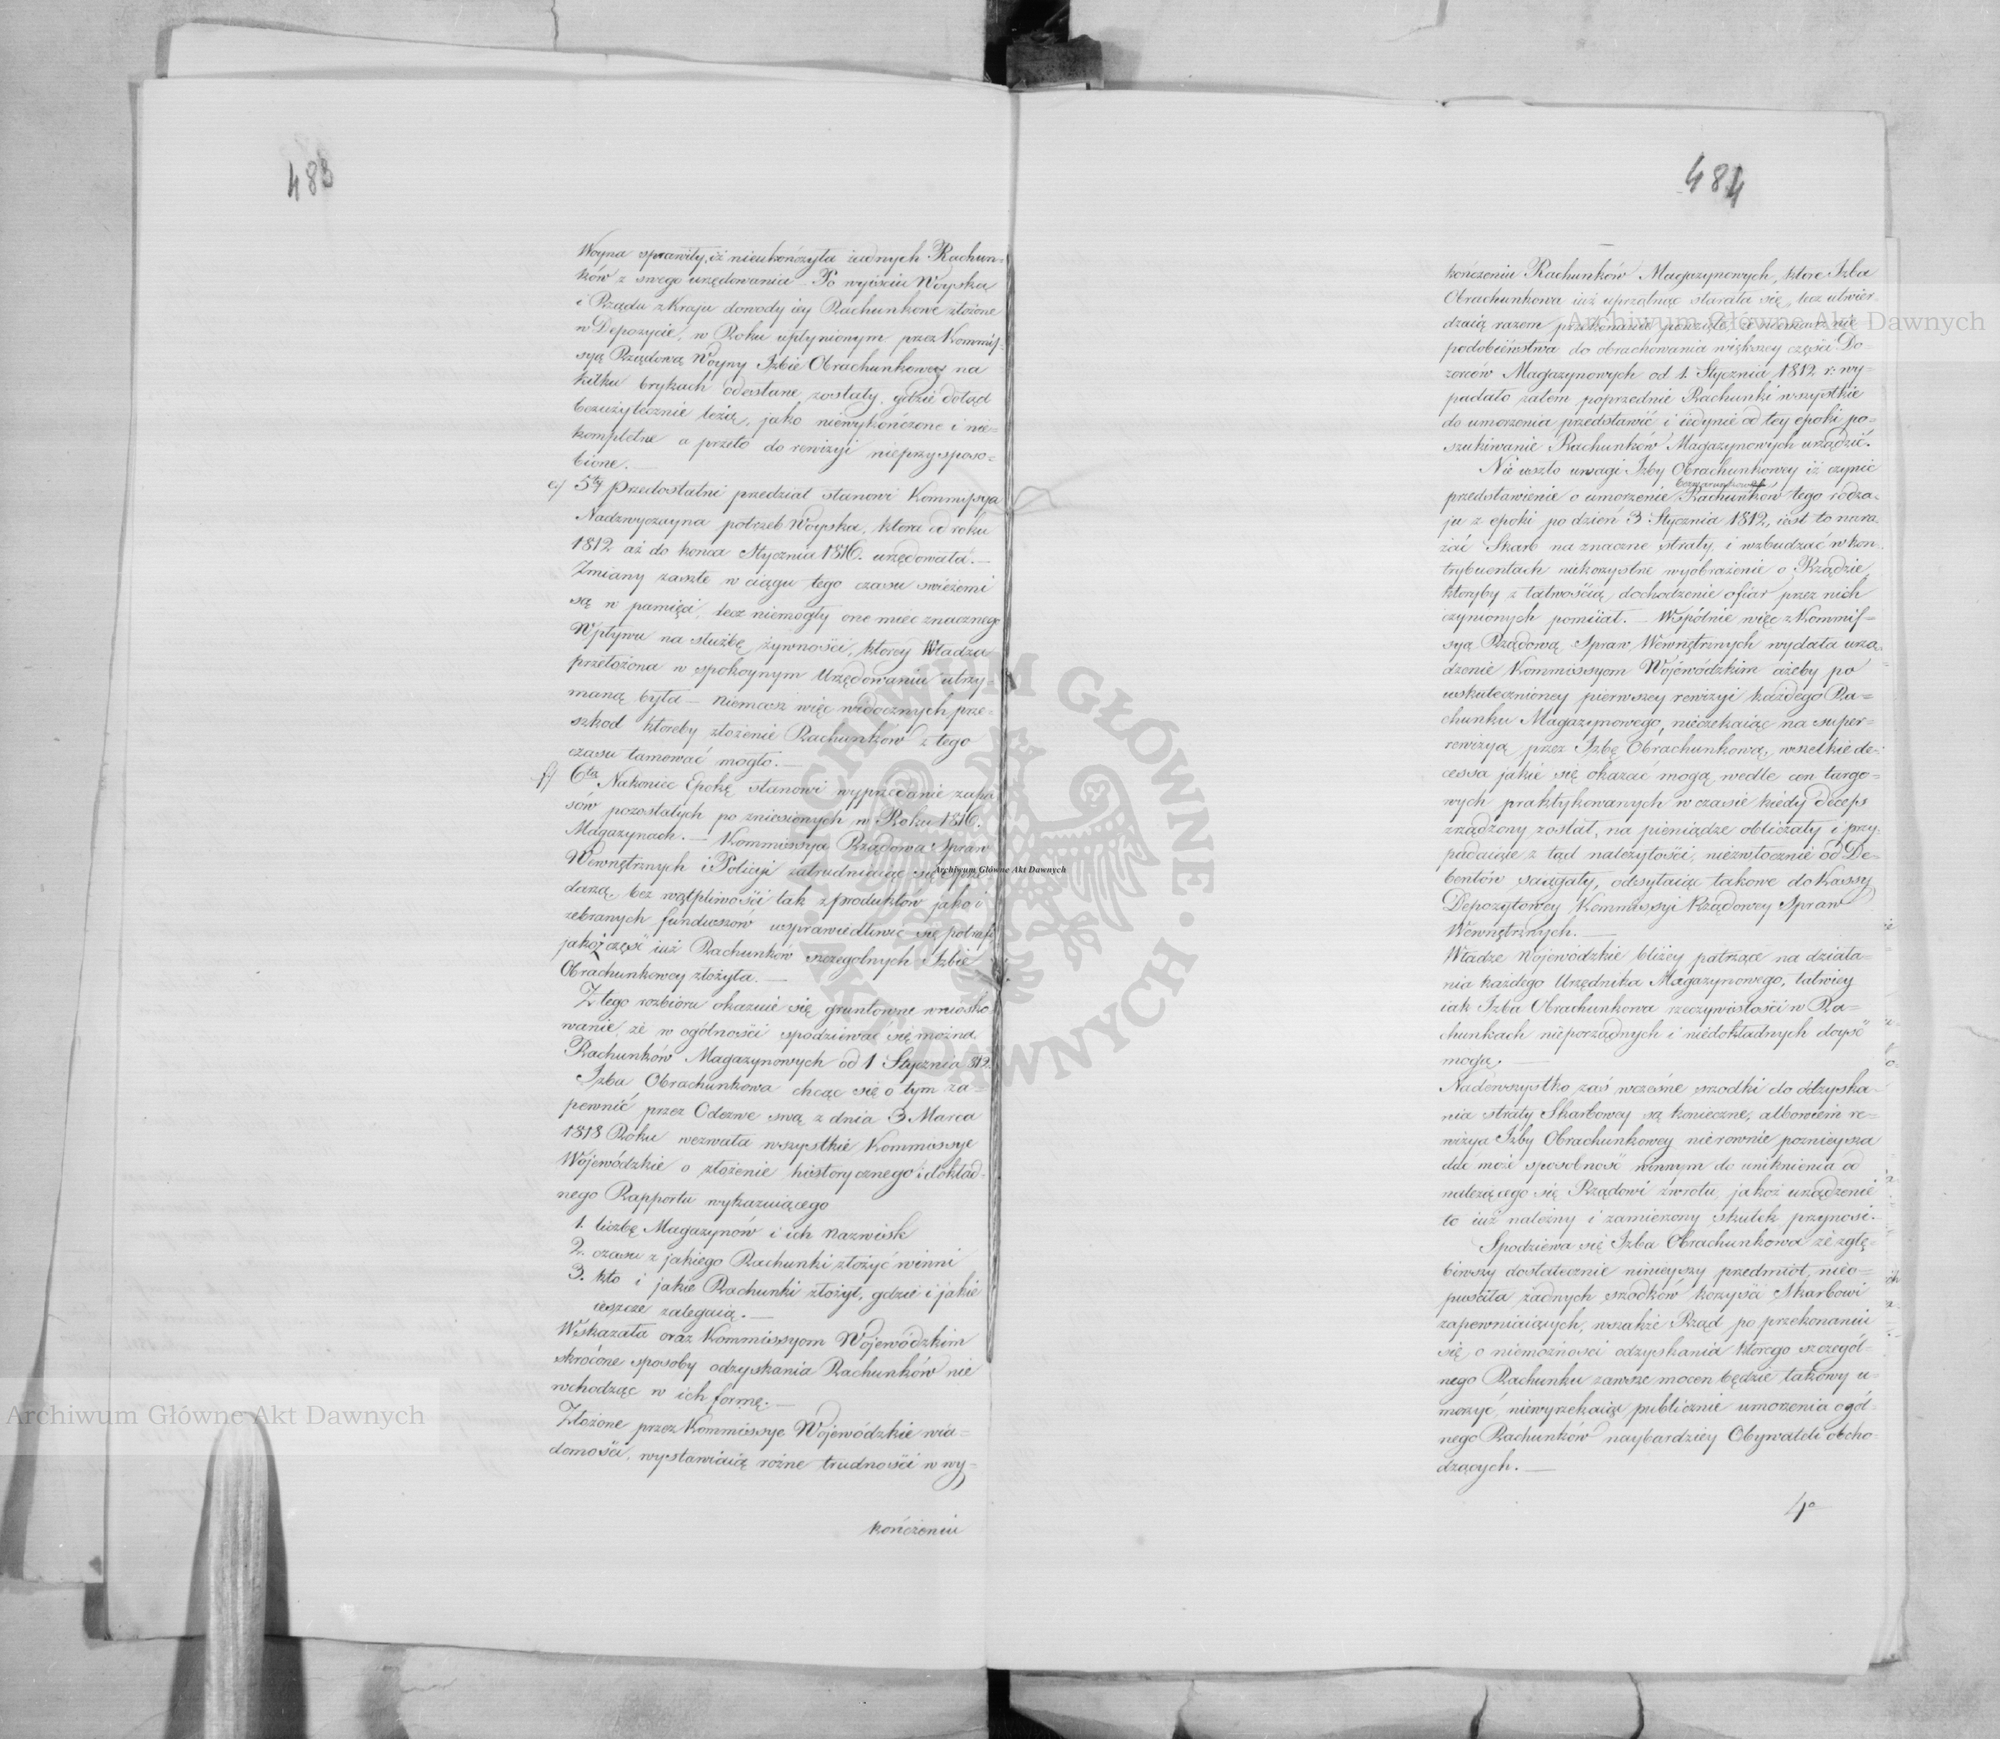 483
Woyna sprawiły, iż nieukończyła żadnych Rachun=
ków z swego urzędowania – Po wyiściu Woyska
i Rządu z Kraju dowody iey Rachunkowe złożone
w Depozycie, w Roku upłynionym przez Kommis=
syą Rządową Woyny Izbie Obrachunkowey na
kilku brykach odesłane zostały, gdzie dotąd
bezużytecznie leżą, jako niewykończone i nie=
kompletne a przeto do rewizyi nieprzysposo=
bione. —
e/ 5ty Przedostatni przedział stanowi Kommissya
Nadzwyczayna potrzeb Woyska, która od roku
1812 aż do końca Stycznia 1816. urzędowała. —
Zmiany zaszłe w ciągu tego czasu świeżemi
są w pamięci, lecz niemogły one mieć znacznego
Wpływu na służbę żywności, którey Władza
przełożona w spokoynym Urzędowaniu utrzy=
maną była – niemasz więc widocznych prze=
szkod któreby złożenie Rachunków z tego
czasu tamować mogło. —
f/ 6ta Nakoniec Epokę stanowi wyprzedanie zapa
sów pozostałych po zniesionych w Roku 1816.
Magazynach. — Kommissya Rządowa Spraw
Wewnętrznych i Policyi zatrudniaiąc się sprze
dażą, bez wątpliwości tak z produktów jako i
zebranych funduszów usprawiedliwić się potrafi
jakoż część iuż Rachunków szczególnych Izbie
Obrachunkowey złożyła. —
Z tego rozbioru okazuie się gruntowne wniosko
wanie, że w ogólności spodziewać się można
Rachunków Magazynowych od 1 Stycznia 812.
Izba Obrachunkowa chcąc się o tym za=
pewnić przez Odezwę swą z dnia 3 Marca
1818 Roku wezwała wszystkie Kommissye
Wojewódzkie o złożenie historycznego i dokład=
nego Rapportu wykazuiącego
1. liczbę Magazynów i ich nazwisk
2. czasu z jakiego Rachunki złożyć winni
3. kto i jakie Rachunki złożył, gdzie i jakie
ieszcze zalegaią. —
Wskazała oraz Kommissyom Wojewódzkim
skrócone sposoby odzyskania Rachunków nie
wchodząc w ich formę. —
Złożone przez Kommissye Wojewódzkie wia=
domości, wystawiaią różne trudności w wy=
kończeniu
484
kończeniu Rachunków Magazynowych, które Izba
Obrachunkowa iuż uprzątnąć starała się, lecz utwier
dzaią razem przekonanie powzięte, że niemasz nie
podobieństwa do obrachowania większey części Do=
zorców Magazynowych od 1. Stycznia 1812 r. wy=
padało zatem poprzednie Rachunki wszystkie
do umorzenia przedstawić i iedynie od tey epoki po=
szukiwanie Rachunków Magazynowych urządzić.
Nie uszło uwagi Izby Obrachunkowey iż czynić
przedstawienie o umorzenie Rachunków tego rodza=
ju z epoki po dzień 3 Stycznia 1812, iest to nara=
żać Skarb na znaczne straty, i wzbudzać w kon
trybuentach niekorzystne wyobrażenie o Rządzie,
któryby z łatwością, dochodzenie ofiar przez nich
czynionych pomiiał. – Wspólnie więc z Kommis=
syą Rządową Spraw Wewnętrznych wydała urzą=
dzenie Kommissyom Wojewódzkim ażeby po
uskutecznioney pierwszey rewizyi każdego Ra=
chunku Magazynowego, nieczekaiąc na super=
rewizyą przez Izbę Obrachunkową, wszelkie de=
cessa jakie się okazać mogą, wedle cen targo=
wych praktykowanych w czasie kiedy decess
zrządzony został, na pieniądze obliczały i przy=
padaiące z tąd należytości, niezwłocznie od De=
bentów sciągały, odsyłaiąc takowe do Kassy
Depozytowey Kommissyi Rządowey Spraw
Wewnętrznych. —
Władze Wojewódzkie bliżey patrzące na działa=
nia każdego Urzędnika Magazynowego, łatwiey
iak Izba Obrachunkowa rzeczywistości w Ra=
chunkach nieporządnych i niedokładnych doyść
mogą. —
Nadewszystko zaś wczesne srzodki do odzyska=
nia straty Skarbowey są konieczne, albowiem re=
wizya Izby Obrachunkowey nierównie poznieysza
dać może sposobność winnym do uniknienia od
należącego się Rządowi zwrotu, jakoż urządzenie
to iuż należny i zamierzony skutek przynosi. –
Spodziewa się Izba Obrachunkowa że zgłę=
biwszy dostatecznie ninieyszy przedmiot, nieo=
puściła żadnych srzodków korzyści Skarbowi
zapewniaiących, wszakże Rząd po przekonaniu
się o niemożności odzyskania którego szczegól=
nego Rachunku zawsze mocen będzie takowy u=
morzyć, niewyrzekaiąc publicznie umorzenia ogól
nego Rachunków naybardziey Obywateli obcho=
dzących. —
4°
Archiwum Główne Akt Dawnych
Archiwum Główne Akt Dawnych
Archiwum Główne Akt Dawnych
ARCHIWUM GŁÓWNE · AKT DAWNYCH ·